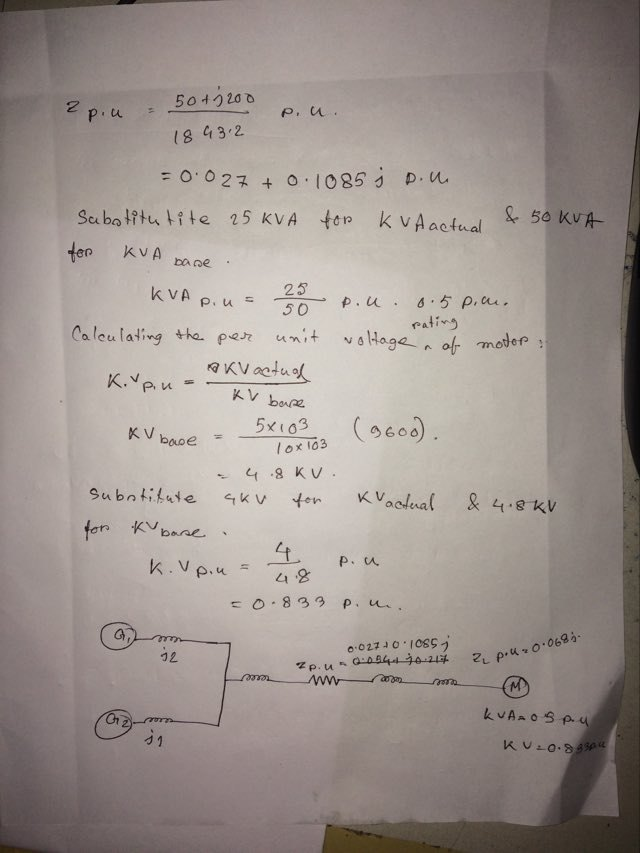 Z p.u = 50+j200 / 1843.2 p.u.
= 0.027 + 0.1085j p.u
Substitutite 25 KVA for KVA actual & 50 KVA
for KVA base.
KVA p.u = 25/50 p.u. 0.5 p.u.
Calculating the per unit voltage rating of motor:
K.V p.u = KV actual / KV base
KV base = 5x103 / 10x103 (9600).
= 4.8 KV.
Substitute 4KV for KV actual & 4.8KV
for KV base.
K.V p.u = 4/4.8 p.u
= 0.833 p.u.
G1
j2
0.027+0.1085j
Z p.u = 0.054+j0.217
ZL p.u=0.068j
M
G2
j1
KVA=0.5 p.u
KV=0.833pu